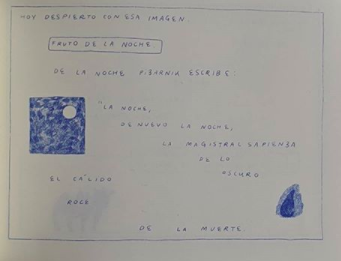 HOY DESPIERTO CON ESA IMAGEN
FRUTO DE LA NOCHE
DE LA NOCHE PIZARNIK ESCRIBE
"LA NOCHE,
DE NUEVO LA NOCHE,
LA MAGISTRAL SAPIENZA
DE LO
OSCURO
EL CÁLIDO
ROCE
DE LA MUERTE